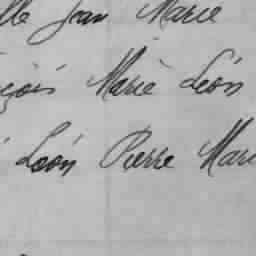 lle Jean Marie
nçois Marie Léon
Léon Pierre Mari